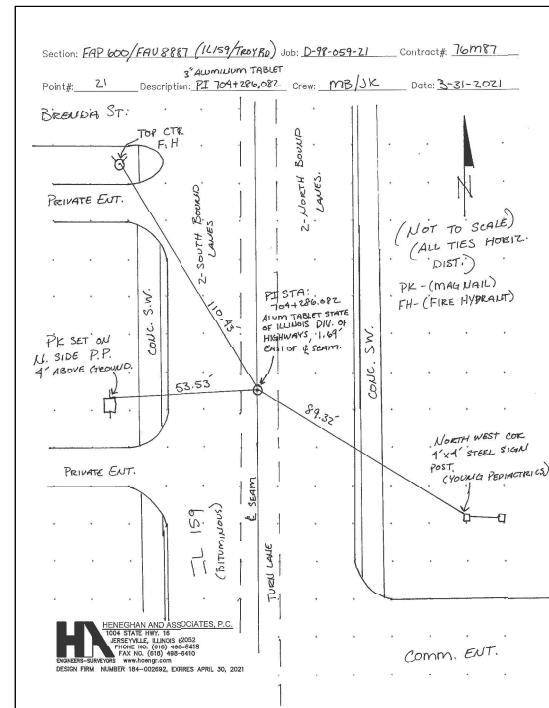 Section: FAP 600/FAU 8887 (IL159/TROY RD) Job: D-98-059-21 Contract#: 76M87
3" ALUMINIUM TABLET
Point#: 21 Description: PI 704+286.082 Crew: MB/JK Date: 3-31-2021
BRENDA ST:
TOP CTR
F.H
PRIVATE ENT.
2-SOUTH BOUND
LANES
2-NORTH BOUND
LANES.
N
(NOT TO SCALE)
(ALL TIES HORIZ.
DIST.)
PK-(MAG NAIL)
FH-(FIRE HYDRANT)
110.43'
PI STA:
704+286.082
ALUM TABLET STATE
OF ILLINOIS DIV. OF
HIGHWAYS, '1.69'
EAST OF ℄ SEAM.
CONC. S.W.
CONC. SW.
PK SET ON
N. SIDE P.P.
4' ABOVE GROUND.
53.53'
89.32'
NORTH WEST COR
4"x4" STEEL SIGN
POST,
(YOUNG PEDIACTRICS)
PRIVATE ENT.
IL 159
(BITUMINOUS)
℄ SEAM
TURN LANE
HA
HENEGHAN AND ASSOCIATES, P.C.
1004 STATE HWY. 16
JERSEYVILLE, ILLINOIS 62052
PHONE NO. (618) 498-6418
FAX NO. (618) 498-6410
ENGINEERS-SURVEYORS www.haengr.com
DESIGN FIRM NUMBER 184-002692, EXPIRES APRIL 30, 2021
COMM. ENT.